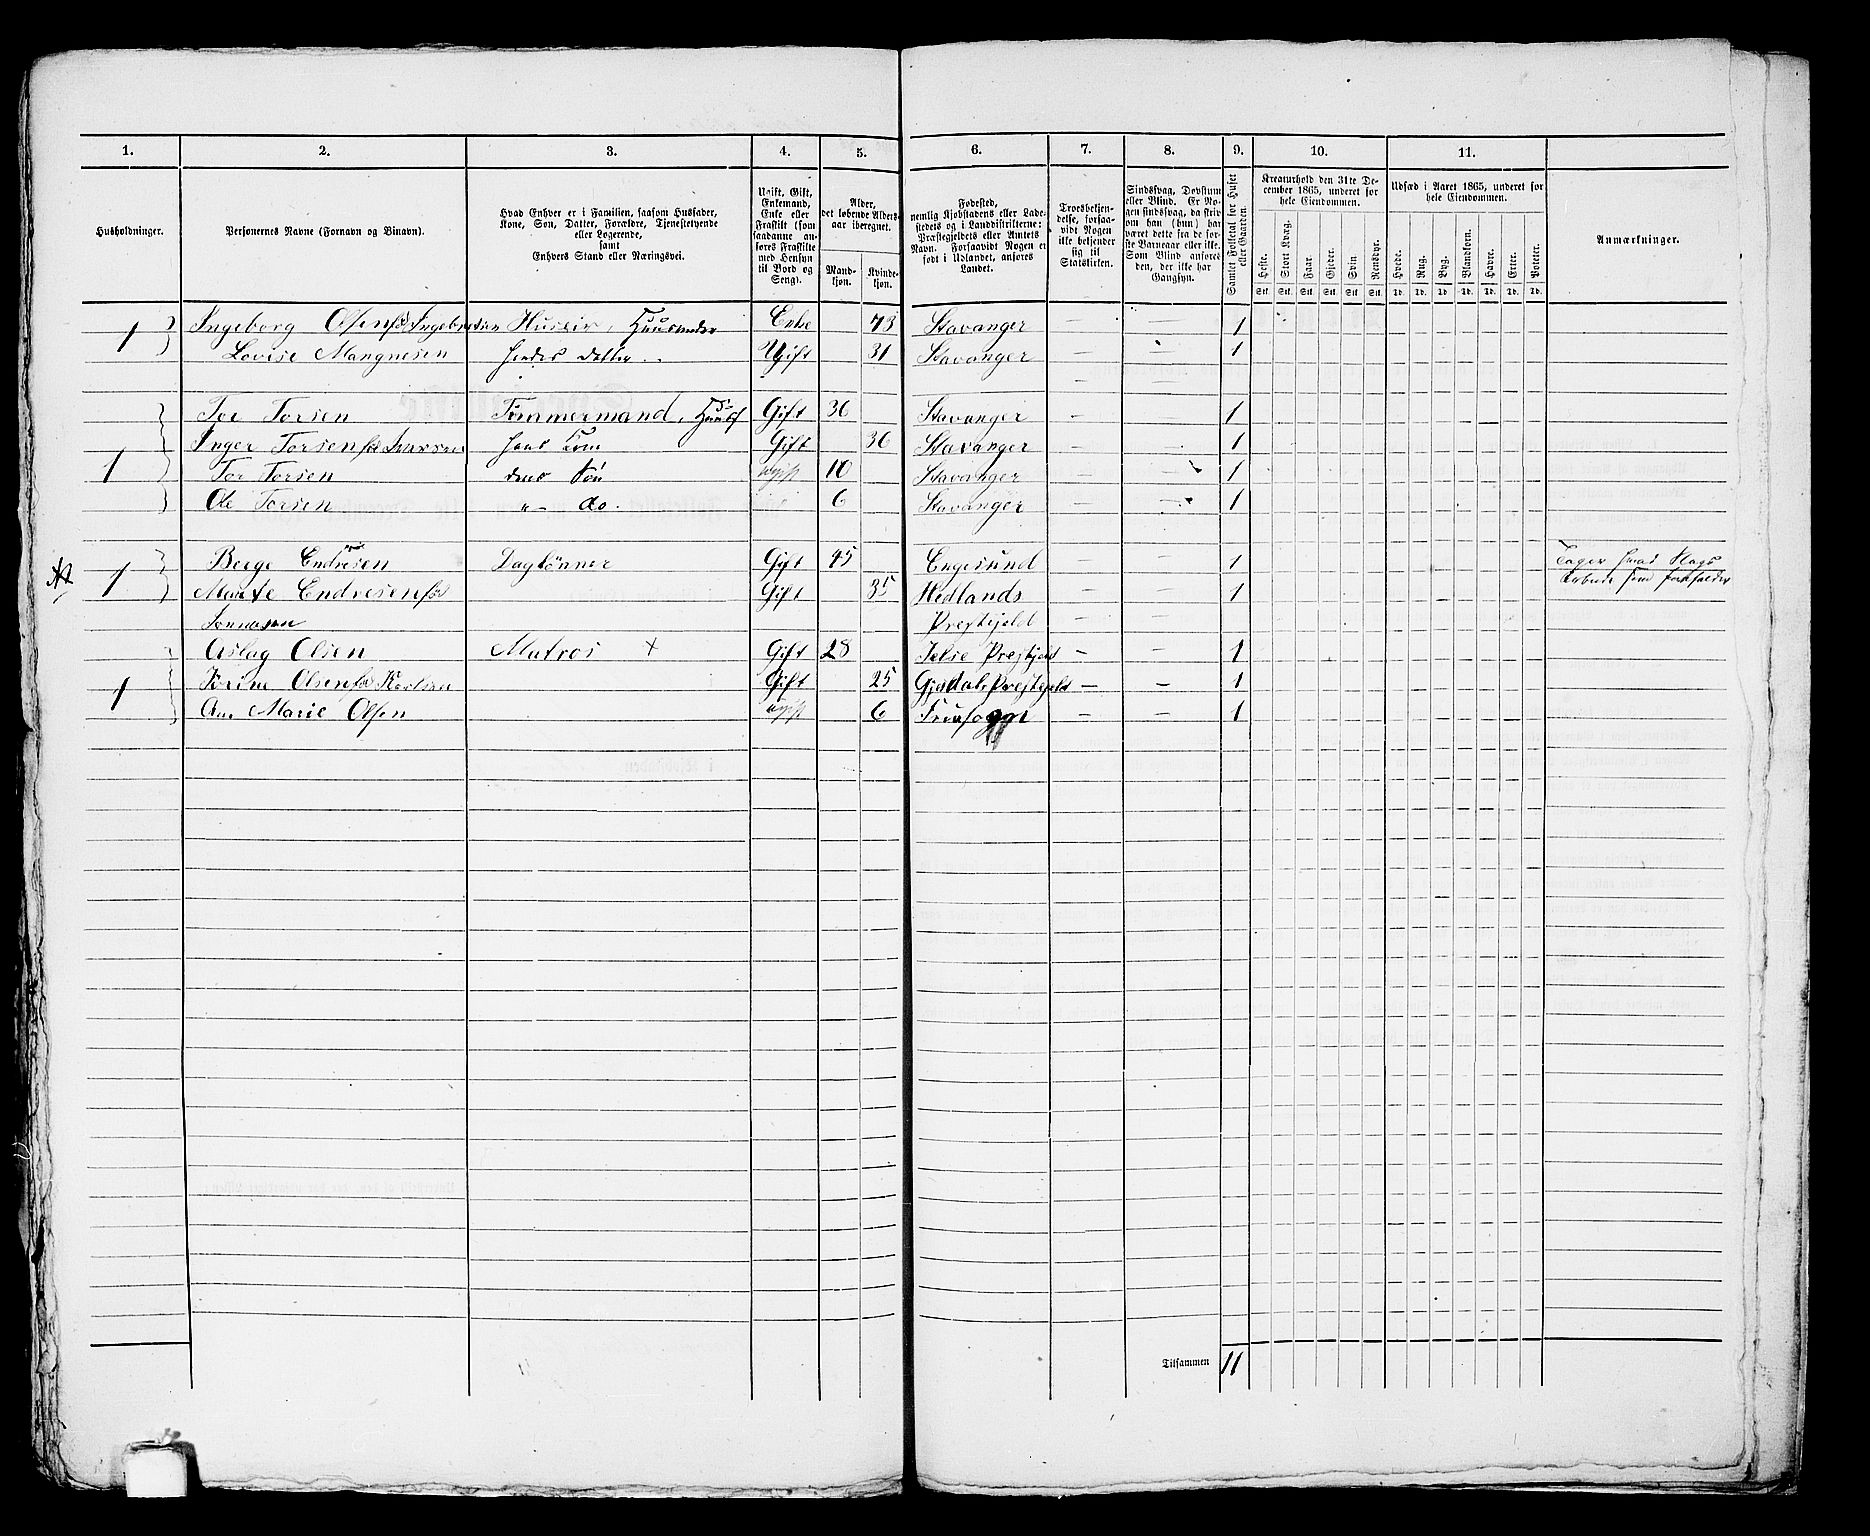 1. 2. 3. 4. 5. 6. 7. 8. 9. 10. 11.
Husholdninger.
Personernes Navne (Fornavn og Binavn).
Hvad Enhver er i Familien, saasom Husfader,
Kone, Søn, Datter, Forældre, Tjenestetyende
eller Logerende,
samt
Enhvers Stand eller Næringsvei.
Ugift, Gift,
Enkemand,
Enke eller
Fraskilt (som
saadanne an-
føres Fraskilte
med Hensyn
til Bord og
Seng).
Alder,
det løbende Alders-
aar iberegnet.
Mand-
kjøn.
Kvinde-
kjøn.
Fødested,
nemlig Kjøbstadens eller Lade-
stedets og i Landdistrikterne:
Præstegjeldets eller Amtets
Navn. Forsaavidt Nogen er
født i Udlandet, anføres
Landet.
Troesbekjen-
delse, forsaa-
vidt Nogen
ikke bekjender
sig til
Statskirken.
Sindssvag, Døvstum
eller Blind. Er No-
gen sindssvag, da skriv
om han (hun) har
været dette fra de før-
ste Barneaar eller ikke.
Som Blind anføres
den, der ikke har
Gangsyn.
Samlet Folketal for Huset
eller Gaarden.
Kreaturhold den 31te De-
cember 1865, underet for
hele Eiendommen.
Heste. Stort Kvæg. Faar. Gjeder. Svin. Rensdyr.
Stk. Stk. Stk. Stk. Stk. Stk.
Udsæd i Aaret 1865, underet for
hele Eiendommen.
Hvede. Rug. Byg. Blandkorn. Havre. Erter. Poteter.
Td. Td. Td. Td. Td. Td. Td.
Anmærkninger.
1 Ingeborg Olsen fød Ingebretsen Huseier, Enke 73 Stavanger — — 1
Lovise Mangnesen hendes datter Ugift 31 Stavanger — — 1
Tor Torsen Tømmermand, Huusf Gift 36 Stavanger — — 1
Inger Torsen fød hans Kone Gift 36 Stavanger — — 1
1 Tor Torsen deres Søn ugift 10 Stavanger — — 1
Ole Torsen " — do. 6 Stavanger — — 1
Berge Endresen Daglønner Gift 45 Engesund — — 1 Tager hvad Slags
1 Marte Endresen fød Gift 35 Hedlands — — 1 Arbeide som forefalder
Tønnesen Prestgjeld — —
Aslag Olsen Matros + Gift 28 Jelse Prestgjeld — — 1
Karine Olsen fød Karlsen Gift 25 Gjesdal Prestgjeld — — 1
1 Ane Marie Olsen ugift 6 — — 1
Tilsammen 11